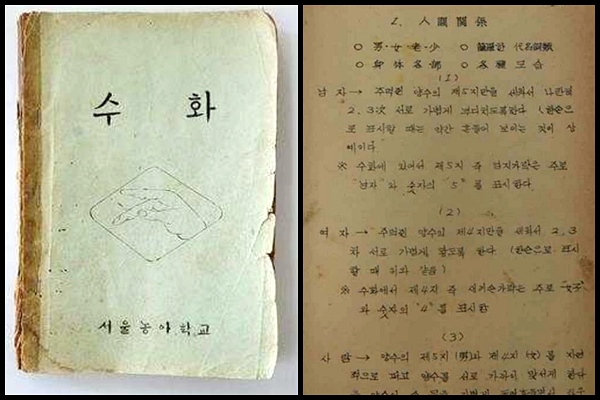 수화
서울농아학교
2. 人間關係
○ 男·女·老·少 ○ 한 代名詞
○ 身体各部 ○ 各種모습
(1)
남자 → 주먹쥔 양수의 제5지만을 세워서 나란히
2, 3次 서로 가볍게 도록한다 (한손으
로 표시할 때는 약간 흔들어 보이는 것이 상
례이다
※ 수화에 있어서 제5지 즉 엄지가락은 주로
"남자"와 숫자의 "5"를 표시한다.
(2)
여자 → 주먹쥔 양수의 제4지만을 세워서 2, 3
차 서로 가볍게 닿도록 한다 (한손으로 표시
할 때 위와 같음)
※ 수화에서 제4지 즉 새끼손가락은 주로 "女子"
와 숫자의 "4"를 표시함
(3)
사람 → 양수의 제5지(男)와 제4지(女)를 자연
적으로 펴고 양수를 서로 가까이 맞서게 한다